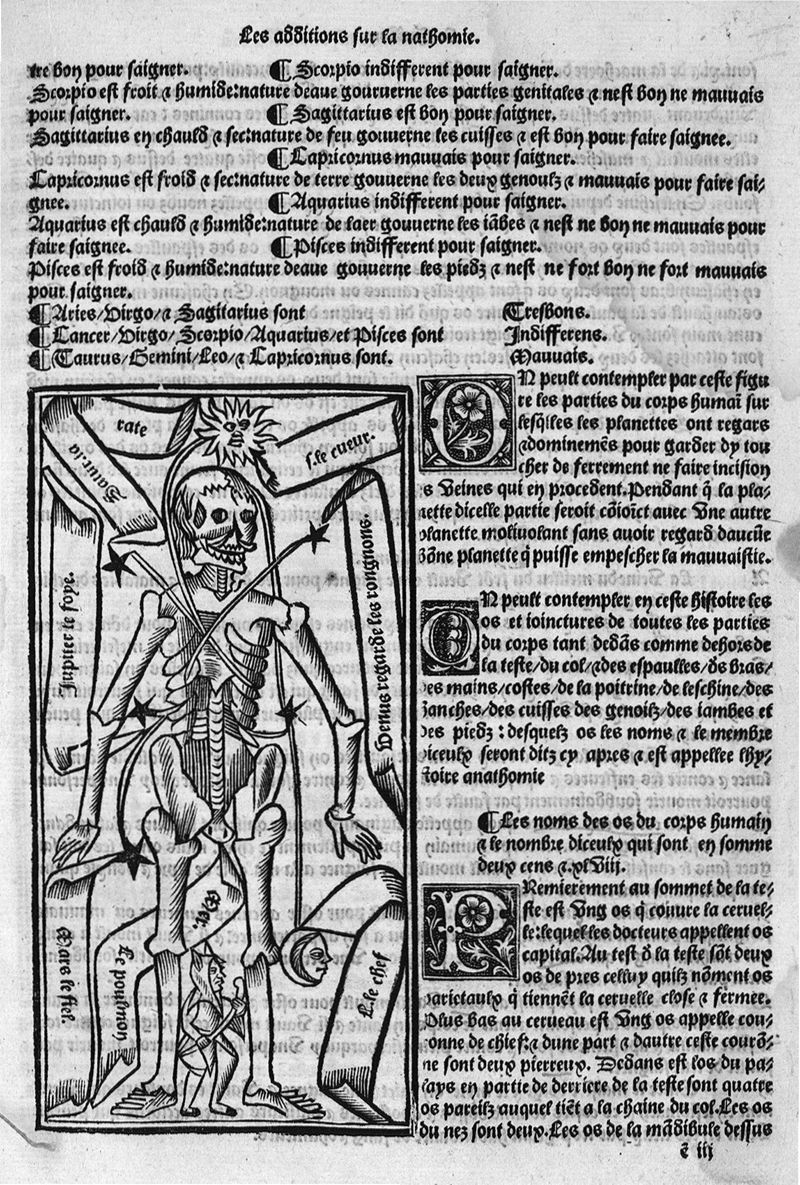 Les additions sur la nathomie.
tre boŋ pour saigner. ¶ Scorpio indifferent pour saigner.
Scorpio est froit ⁊ humide:nature deaue gouruerne les parties genitales ⁊ nest boŋ ne mauuais
pour saigner. ¶ Sagittarius est boŋ pour saigner.
Sagittarius eŋ chauld ⁊ sec:nature de feu gouuerne les cuisses ⁊ est boŋ pour faire saignee.
¶ Capricornus mauuais pour saigner.
Capricornus est froid ⁊ sec:nature de terre gouuerne les deux genoulz ⁊ mauuais pour faire sai-
gnee. ¶ Aquarius indifferent pour saigner.
Aquarius est chauld ⁊ humide:nature de laer gouuerne les iābes ⁊ nest ne boŋ ne mauuais pour
faire saignee. ¶ Pisces indifferent pour saigner.
Pisces est froid ⁊ humide:nature deaue gouuerne les piedz ⁊ nest ne fort boŋ ne fort mauuais
pour saigner.
¶ Aries/Virgo/⁊ Sagitarius sont Tresbons.
¶ Cancer/Virgo/Scorpio/Aquarius/et Pisces sont Indifferens.
¶ Taurus/Gemini/Leo/⁊ Capricornus sont. Mauuais.
rate
Saturne la
s.le cueur.
Jupiter le foye.
Venus regarde les rongnons.
Mars le fiel.
Le poulmon
Mer.
L.le chef
ON peult contempler par ceste figu
re les parties du corps humaī sur
lesq̄lles les planettes ont regars
⁊dominemēs pour garder dy tou
cher de ferrement ne faire incision
s Veines qui eŋ procedent.Pendant q̄ la pla-
nette dicelle partie seroit cōioīct auec Vne autre
planette moliuolant sans auoir regard daucūe
bōne planette q̄ puisse empescher la mauuaistie.
ON peult contempler eŋ ceste histoire les
os et ioinctures de toutes les parties
du corps tant dedās comme dehors de
la teste/du col/⁊des espaulles/ds bras/
es mains/costes/de la poitrine/de leschine/des
hanches/des cuisses des genoilz/des iambes et
des piedz : desquelz os les noms ⁊ le membre
diceulx seront ditz cy apres ⁊ est appellee lhy-
stoire anathomie
¶ Les noms des os du corps humaiŋ
⁊ le nombre diceulx qui sont eŋ somme
deux cens ⁊.xlViij.
PRemierement au sommet de la te-
ste est Vng os q̄ couure la ceruel-
le:lequel les docteurs appellent os
capital.Au test d la teste sōt deux
os de pres celluy quilz nōment os
parietaulx q̄ tiennēt la ceruelle close ⁊ fermee.
Plus bas au cerueau est Vng os appelle cou-
ronne de chief:⁊ dune part ⁊ dautre ceste courō-
ne sont deux pierreux. Dedans est los du pa-
lays eŋ partie de derriere de la teste sont quatre
os pareilz auquel tiēt a la chaine du col.Les os
du nez sont deux.Les os de la mādibule dessus
ē iij